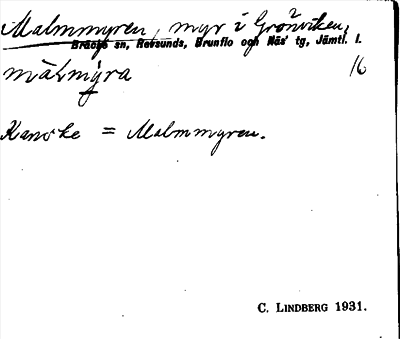 Malmmyren, myr i Grönviken,
Bräcke sn, Revsunds, Brunflo och Näs' tg, Jämtl. l.
mál̄mýra 16
Kanske = Malmmyren.
C. LINDBERG 1931.